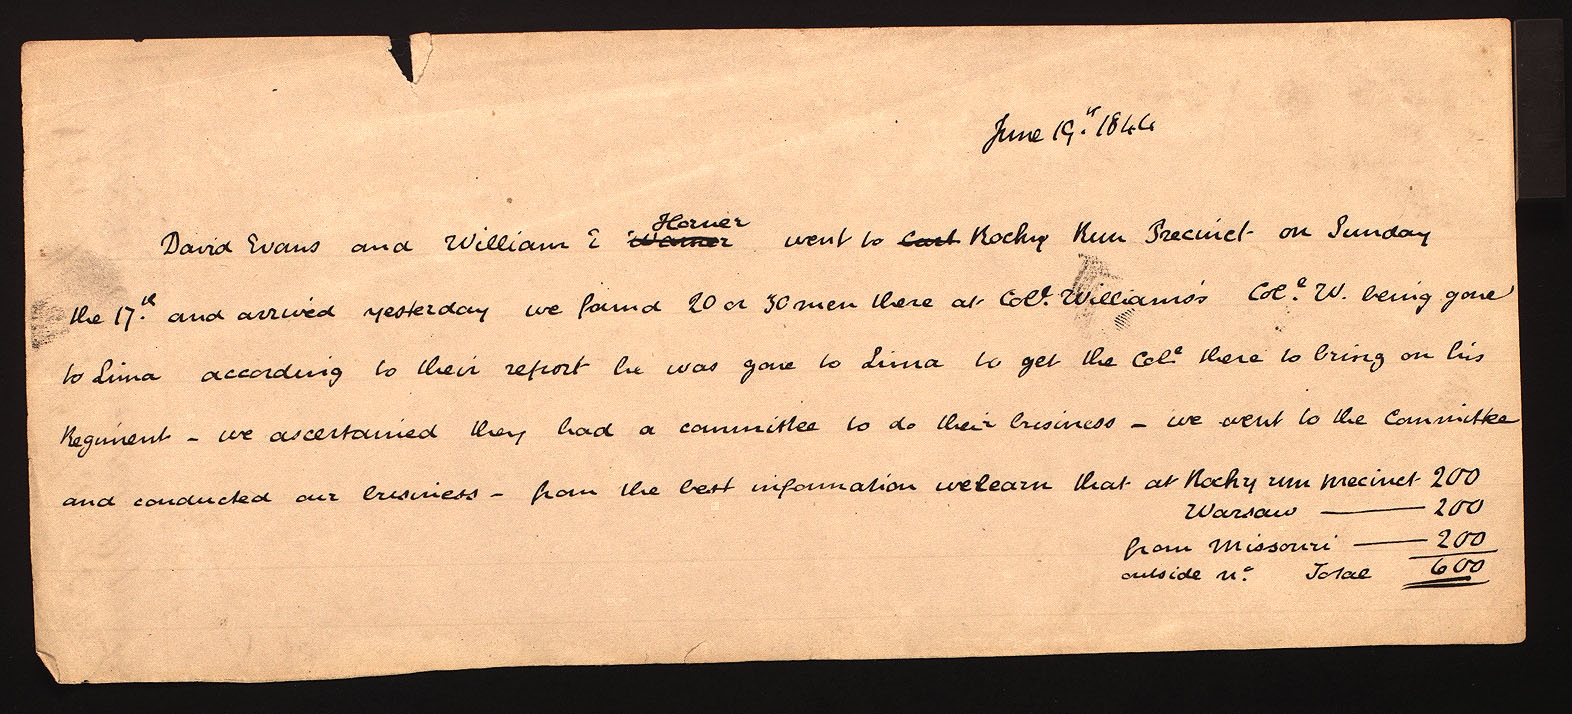 June 19.th 1844
David Evans and William E Horner
Warner went to Cart Rocky Run Precinct on Sunday
the 17.th and arrived yesterday we found 20 or 30 men there at Col.l Williams's Col.l W. being gone
to Lima according to their report he was gone to Lima to get the Col.l there to bring on his
Regiment - we ascertained they had a committee to do their business - we went to the Committee
and conducted our business - from the best information we learn that at Rocky run precinct 200
Warsaw —— 200
from Missouri —— 200
outside n.o Total 600